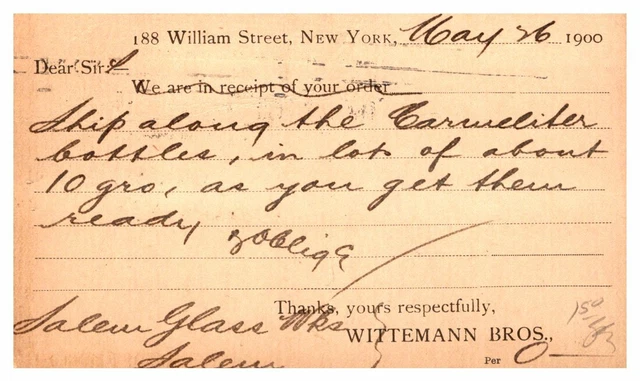 188 William Street, NEW YORK, May 26 1900
Dear Sirs
We are in receipt of your order
Ship along the Carmeliter
bottles, in lots of about
10 gro, as you get them
ready
& Oblige
Thanks, yours respectfully,
Salem Glass Wks
WITTEMANN BROS.,
Salem
Per O